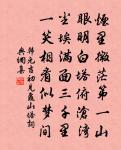 煙靄微茫第一山
眼明白塔倚滄灣
塵埃滿面三千里
一笑相看似夢間
韓元吉初見龜山塔詞
典網集